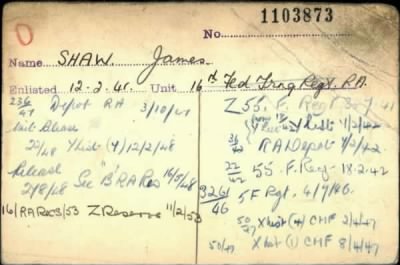 1103873
O No.
Name SHAW. James
Enlisted 12.2.41. Unit 16th Fd Trng Regt. R.A.
236/47 Depot RA 3/10/47
Unit Release
22/48 Y List (4) 12/2/48
Release
2/8/48 See "B" RA Res 16/5/48
16/RARes/53 Z Reserve 11/2/53
Z 55. F. Regt
Y List 1/2/42
36/42 RA Depot 7/2/42.
22/42 55. F. Reg - 18.2.42
9261/46 5 F Rgt. 4/7/46.
50/47 X list (4) CMF 2/4/47
50/47 X list (1) CMF 8/4/47